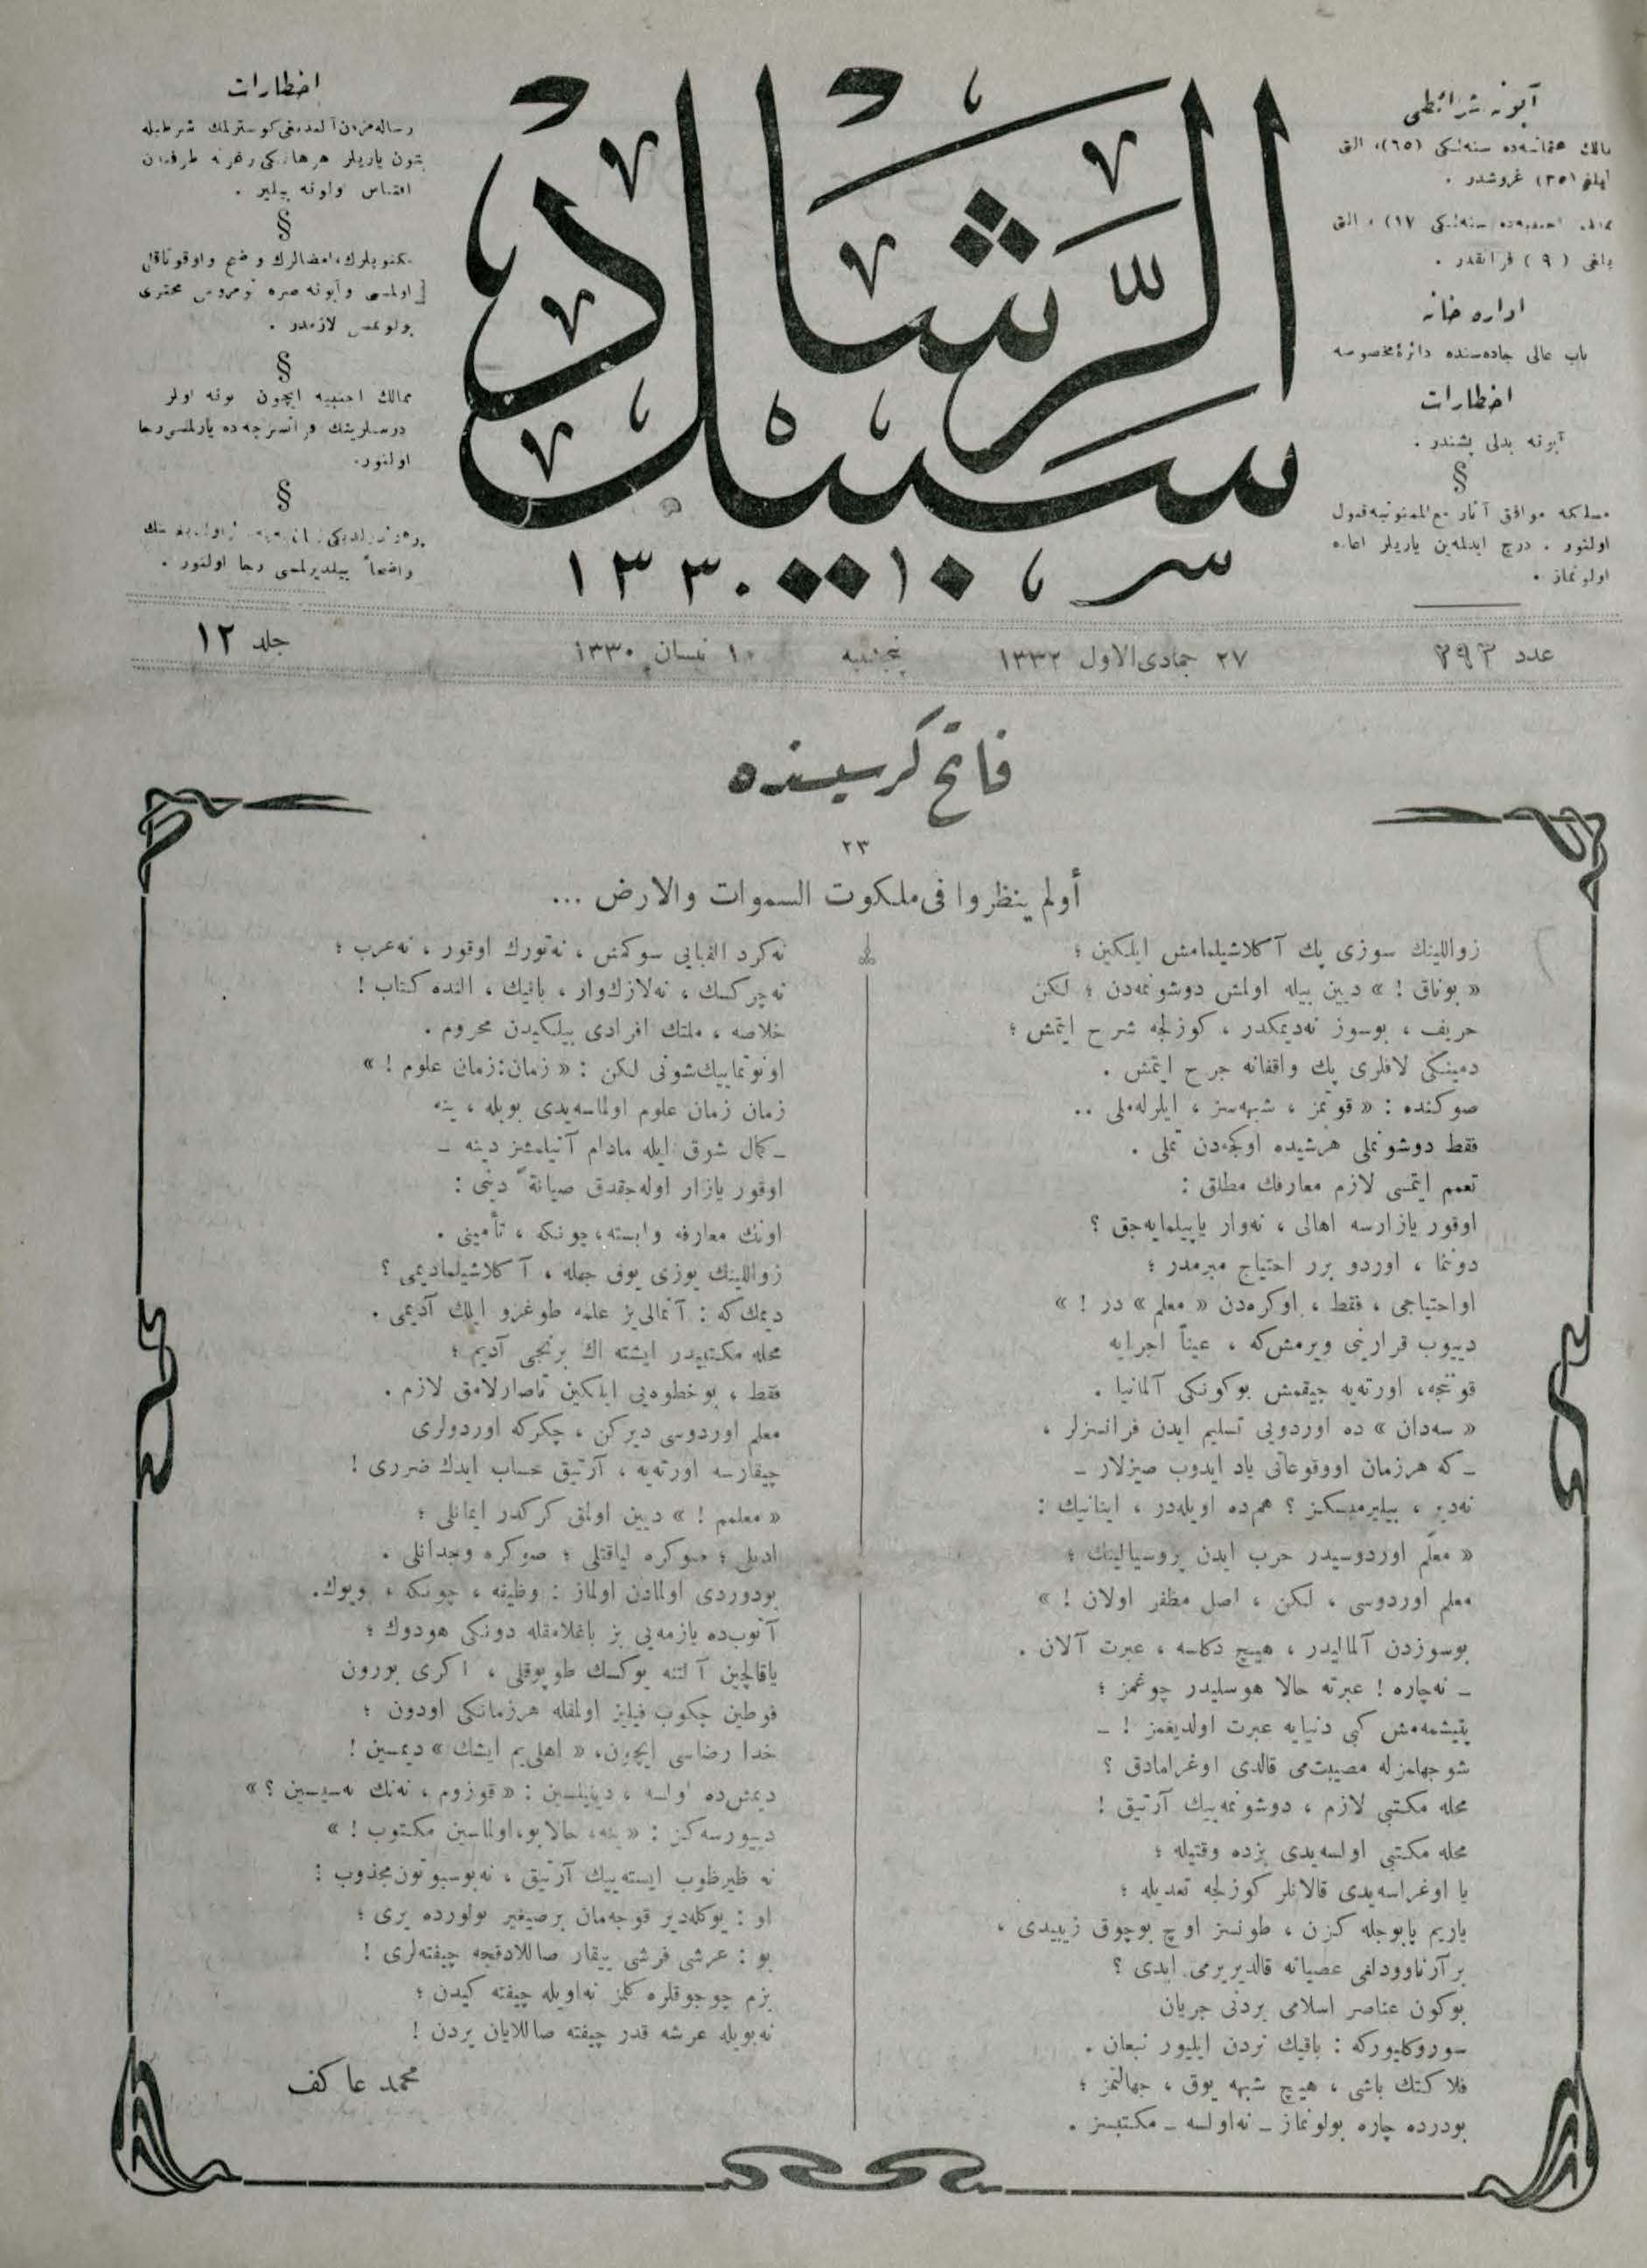 آبونه شرائطی
ممالك عثمانیه‌ده سنه‌لكی (٦٥)، التی
آیلغی (٣٥) غروشدر .
ممالك اجنبیه‌ده سنه‌لكی (١٧) ، التی
آیلغی ( ٩ ) فرانقدر .
اداره خانه
باب عالی جاده‌سنده دائرهٔ مخصوصه
اخطارات
آبونه بدلی پشندر .
§
مسلكمه موافق آثار مع‌الممنونیه قبول
اولنور . درج ایدلمه‌ین یازیلر اعاده
اولونماز .
سبیل الرشاد
١٣٣٠
اخطارات
رساله‌مزدن آلندیغی كوسترلمك شرطیله
بتون یازیلر هر هانكی بر غزته طرفندن
اقتباس اولونه بیلیر .
§
مكتوبلرك، امضالرك واضح و اوقوناقلی
اولمسی و آبونه صره نومروسی محتوی
بولونمسی لازمدر .
§
ممالك اجنبیه ایچون آبونه اولنلر
آدرسلرینك فرانسزجه‌ده یازلمسی رجا
اولنور.
§
واضحاً بیلدیرلمسی رجا اولنور .
عدد ٢٩٣
٢٧ جمادی‌الاول ١٣٣٢
پنجشنبه
١٠ نیسان ١٣٣٠
جلد ١٢
فاتح كرسیسنده
٢٣
أولم ینظروا فی ملكوت السموات والارض ...
زواللینك سوزی پك آكلاشیلمامش ایلكین ؛
« بوناق ! » دیین بیله اولمش دوشونمه‌دن ؛ لكن
حریف ، بوسوز نه‌دیمكدر ، كوزلجه شرح ایتمش ؛
دمینكی لافلری پك واقفانه جرح ایتمش .
صوكنده : « قوتمز ، شبهه‌سز ، ایلرله‌ملی ..
فقط دوشونملی هرشیده اوكجه‌دن تملی .
تعمم ایتمسی لازم معارفك مطلق :
اوقور یازارسه اهالی ، نه‌وار یاپیلمایه‌جق ؟
دونما ، اوردو برر احتیاج مبرمدر ؛
او احتیاجی ، فقط ، اوكره‌دن « معلم » در ! »
دییوب قرارینی ویرمش‌كه ، عیناً اجرایه
قوننجه، اورته‌یه چیقمش بوكونكی آلمانیا .
« سه‌دان » ده اوردویی تسلیم ایدن فرانسزلر ،
ـ كه هر زمان او وقوعاتی یاد ایدوب صیزلار ـ
نه‌دیر ، بیلیرمیسكز ؟ هم‌ده اویله‌در ، اینانیك :
« معلم اوردوسیدر حرب ایدن پروسیالینك ؛
معلم اوردوسی ، لكن ، اصل مظفر اولان ! »
بوسوزدن آلمالیدر ، هیچ دكلسه ، عبرت آلان .
ـ نه‌چاره ! عبرته حالا هوسلیدر چوغمز ؛
یتیشمه‌مش كبی دنیایه عبرت اولدیغمز ! ـ
شو جهلمزله مصیبت‌می قالدی اوغرامادق ؟
محله مكتبی لازم ، دوشونمه‌ییك آرتیق !
محله مكتبی اولسه‌یدی بزده وقتیله ؛
یا اوغراسه‌یدی قالانلر كوزلجه تعدیله ؛
یاریم پابوجله كزن ، طونسز اوچ بوچوق زیبیدی ،
بر آرناوودلغی عصیانه قالدیریرمی ایدی ؟
بوكون عناصر اسلامی بردنی جریان
سوروكلیوركه : باقیك نردن ایلیور نبعان .
فلاكتك باشی ، هیچ شبهه یوق ، جهالتمز ؛
بودرده چاره بولونماز ـ نه‌اولسه ـ مكتبسز .
نه‌كرد الفبایی سوكمش ، نه‌تورك اوقور ، نه‌عرب ؛
نه‌چركسك ، نه‌لازك‌وار ، باقیك ، النده كتاب !
خلاصه ، ملتك افرادی بیلكیدن محروم .
اونوتماییك‌شونی لكن : « زمان: زمان علوم ! »
زمان زمان علوم اولماسه‌یدی بویله ، ینه
ـ كمال شوق ایله مادام آتیلمشز دینه ـ
اوقور یازار اوله‌جقدق صیانةً دینی :
اونك معارفه وابسته، چونكه ، تأمینی .
زواللینك یوزی یوق جهله ، آكلاشیلمادیمی ؟
دیمك‌كه : آتمالی‌یز علمه طوغرو ایلك آدیمی .
محله مكتبیدر ایشته اك برنجی آدیم ؛
فقط ، بو خطوه‌یی ایلكین تاصارلامق لازم .
معلم اوردوسی دیركن ، چكركه اوردولری
چیقارسه اورته‌یه ، آرتیق حساب ایدك ضرری !
« معلمم ! » دیین اولمق كركدر ایمانلی ؛
ادبلی ؛ صوكره لیاقتلی ؛ صوكره وجدانلی .
بودوردی اولمادن اولماز : وظیفه ، چونكه ، بویوك.
آتوب‌ده یازمه‌یی بز باغلامقله دونكی هودوك ؛
یاقالچین آلتنه یوكسك طوپوقلی ، اكری بورون
فوطین چكوب فیلیز اولمقله هرزمانكی اودون ؛
خدا رضاسی ایچون، « اهلی‌یم ایشك » دیمسین !
دیمش‌ده اولسه ، دینیلسین : « قوزوم ، نه‌نك نه‌سیسین ؟ »
دییورسه‌كز : « ینه، حالا بو، اولماسین مكتوب ! »
نه ظیرظوب ایسته‌ییك آرتیق ، نه‌بوسبوتون مجذوب :
او : یوكله‌دیر قوجه‌مان بر صیغیر بولورده یری ؛
بو : عرشی فرشی ییقار صاللادقجه چیفته‌لری !
بزم چوجوقلره كلمز نه‌اویله چیفته كیدن ؛
نه‌بویله عرشه قدر چیفته صاللایان یردن !
محمد عاكف